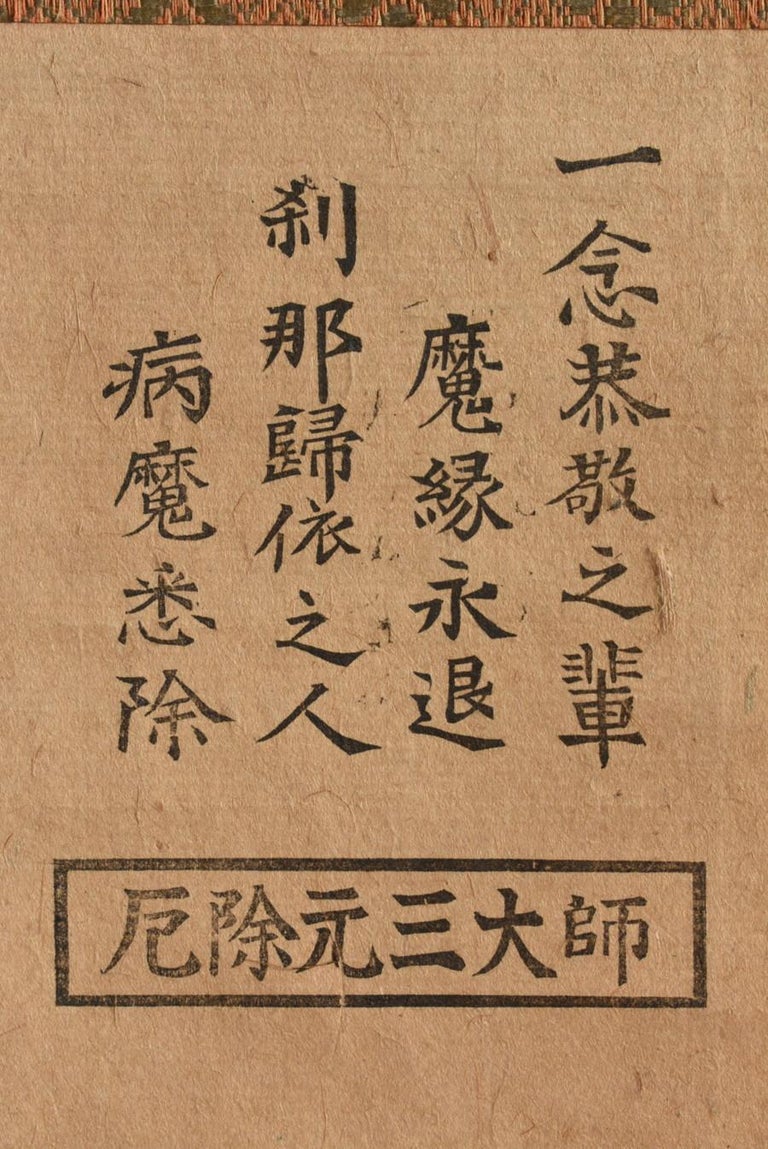 一念恭敬之輩
魔縁永退
刹那歸依之人
病魔悉除
厄除元三大師